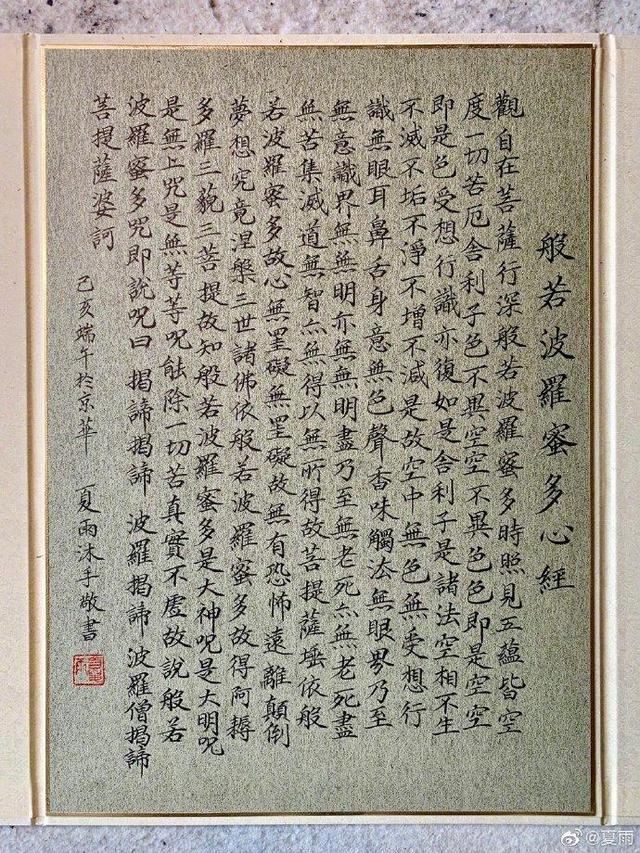 般若波羅蜜多心經
觀自在菩薩行深般若波羅蜜多時照見五蘊皆空
度一切苦厄舍利子色不異空空不異色色即是空空
即是色受想行識亦復如是舍利子是諸法空相不生
不滅不垢不淨不增不減是故空中無色無受想行
識無眼耳鼻舌身意無色聲香味觸法無眼界乃至
無意識界無無明亦無無明盡乃至無老死亦無老死盡
無苦集滅道無智亦無得以無所得故菩提薩埵依般
若波羅蜜多故心無罣礙無罣礙故無有恐怖遠離顛倒
夢想究竟涅槃三世諸佛依般若波羅蜜多故得阿耨
多羅三藐三菩提故知般若波羅蜜多是大神呪是大明呪
是無上咒是無等等呪能除一切苦真實不虛故說般若
波羅蜜多咒即說呪曰 揭諦揭諦 波羅揭諦 波羅僧揭諦
菩提薩婆訶 己亥端午於京華 夏雨沐手敬書
@夏雨